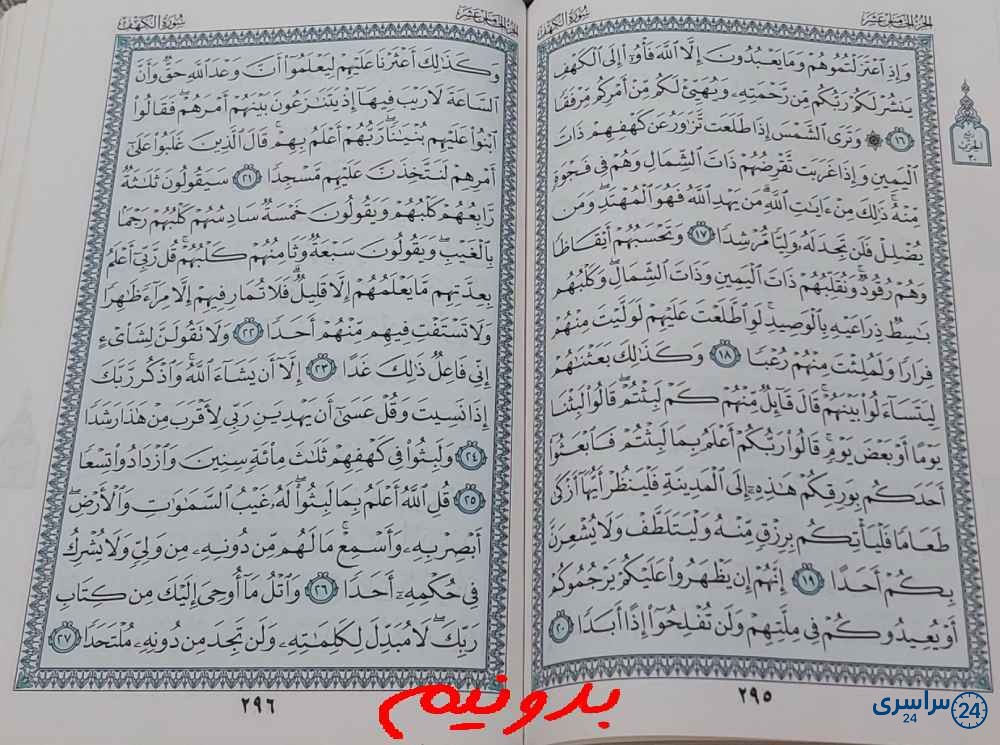 الجزء الخامس عشر
سورة الكهف
وَإِذِ ٱعْتَزَلْتُمُوهُمْ وَمَا يَعْبُدُونَ إِلَّا ٱللَّهَ فَأْوُۥٓا۟ إِلَى ٱلْكَهْفِ
يَنشُرْ لَكُمْ رَبُّكُم مِّن رَّحْمَتِهِۦ وَيُهَيِّئْ لَكُم مِّنْ أَمْرِكُم مِّرْفَقًا
١٦ ۞ وَتَرَى ٱلشَّمْسَ إِذَا طَلَعَت تَّزَٰوَرُ عَن كَهْفِهِمْ ذَاتَ
ٱلْيَمِينِ وَإِذَا غَرَبَت تَّقْرِضُهُمْ ذَاتَ ٱلشِّمَالِ وَهُمْ فِى فَجْوَةٍ
مِّنْهُ ۚ ذَٰلِكَ مِنْ ءَايَٰتِ ٱللَّهِ ۗ مَن يَهْدِ ٱللَّهُ فَهُوَ ٱلْمُهْتَدِ ۖ وَمَن
يُضْلِلْ فَلَن تَجِدَ لَهُۥ وَلِيًّا مُّرْشِدًا ١٧ وَتَحْسَبُهُمْ أَيْقَاظًا
وَهُمْ رُقُودٌ ۚ وَنُقَلِّبُهُمْ ذَاتَ ٱلْيَمِينِ وَذَاتَ ٱلشِّمَالِ ۖ وَكَلْبُهُم
بَٰسِطٌ ذِرَاعَيْهِ بِٱلْوَصِيدِ ۚ لَوِ ٱطَّلَعْتَ عَلَيْهِمْ لَوَلَّيْتَ مِنْهُمْ
فِرَارًا وَلَمُلِئْتَ مِنْهُمْ رُعْبًا ١٨ وَكَذَٰلِكَ بَعَثْنَٰهُمْ
لِيَتَسَآءَلُوا۟ بَيْنَهُمْ ۚ قَالَ قَآئِلٌ مِّنْهُمْ كَمْ لَبِثْتُمْ ۖ قَالُوا۟ لَبِثْنَا
يَوْمًا أَوْ بَعْضَ يَوْمٍ ۚ قَالُوا۟ رَبُّكُمْ أَعْلَمُ بِمَا لَبِثْتُمْ فَٱبْعَثُوٓا۟
أَحَدَكُم بِوَرِقِكُمْ هَٰذِهِۦٓ إِلَى ٱلْمَدِينَةِ فَلْيَنظُرْ أَيُّهَآ أَزْكَىٰ
طَعَامًا فَلْيَأْتِكُم بِرِزْقٍ مِّنْهُ وَلْيَتَلَطَّفْ وَلَا يُشْعِرَنَّ
بِكُمْ أَحَدًا ١٩ إِنَّهُمْ إِن يَظْهَرُوا۟ عَلَيْكُمْ يَرْجُمُوكُمْ
أَوْ يُعِيدُوكُمْ فِى مِلَّتِهِمْ وَلَن تُفْلِحُوٓا۟ إِذًا أَبَدًا ٢٠
٢٩٥
الجزء الخامس عشر
سورة الكهف
وَكَذَٰلِكَ أَعْثَرْنَا عَلَيْهِمْ لِيَعْلَمُوٓا۟ أَنَّ وَعْدَ ٱللَّهِ حَقٌّ وَأَنَّ
ٱلسَّاعَةَ لَا رَيْبَ فِيهَآ إِذْ يَتَنَٰزَعُونَ بَيْنَهُمْ أَمْرَهُمْ ۖ فَقَالُوا۟
ٱبْنُوا۟ عَلَيْهِم بُنْيَٰنًا ۖ رَّبُّهُمْ أَعْلَمُ بِهِمْ ۚ قَالَ ٱلَّذِينَ غَلَبُوا۟ عَلَىٰٓ
أَمْرِهِمْ لَنَتَّخِذَنَّ عَلَيْهِم مَّسْجِدًا ٢١ سَيَقُولُونَ ثَلَٰثَةٌ
رَّابِعُهُمْ كَلْبُهُمْ وَيَقُولُونَ خَمْسَةٌ سَادِسُهُمْ كَلْبُهُمْ رَجْمًۢا
بِٱلْغَيْبِ ۖ وَيَقُولُونَ سَبْعَةٌ وَثَامِنُهُمْ كَلْبُهُمْ ۚ قُل رَّبِّىٓ أَعْلَمُ
بِعِدَّتِهِم مَّا يَعْلَمُهُمْ إِلَّا قَلِيلٌ ۗ فَلَا تُمَارِ فِيهِمْ إِلَّا مِرَآءً ظَٰهِرًا
وَلَا تَسْتَفْتِ فِيهِم مِّنْهُمْ أَحَدًا ٢٢ وَلَا تَقُولَنَّ لِشَا۟ىْءٍ
إِنِّى فَاعِلٌ ذَٰلِكَ غَدًا ٢٣ إِلَّآ أَن يَشَآءَ ٱللَّهُ ۚ وَٱذْكُر رَّبَّكَ
إِذَا نَسِيتَ وَقُلْ عَسَىٰٓ أَن يَهْدِيَنِ رَبِّى لِأَقْرَبَ مِنْ هَٰذَا رَشَدًا
٢٤ وَلَبِثُوا۟ فِى كَهْفِهِمْ ثَلَٰثَ مِا۟ئَةٍ سِنِينَ وَٱزْدَادُوا۟ تِسْعًا
٢٥ قُلِ ٱللَّهُ أَعْلَمُ بِمَا لَبِثُوا۟ ۖ لَهُۥ غَيْبُ ٱلسَّمَٰوَٰتِ وَٱلْأَرْضِ ۖ
أَبْصِرْ بِهِۦ وَأَسْمِعْ ۚ مَا لَهُم مِّن دُونِهِۦ مِن وَلِىٍّ وَلَا يُشْرِكُ
فِى حُكْمِهِۦٓ أَحَدًا ٢٦ وَٱتْلُ مَآ أُوحِىَ إِلَيْكَ مِن كِتَابِ
رَبِّكَ ۖ لَا مُبَدِّلَ لِكَلِمَٰتِهِۦ وَلَن تَجِدَ مِن دُونِهِۦ مُلْتَحَدًا ٢٧
٢٩٦
بدونیم
سراسری 24
24